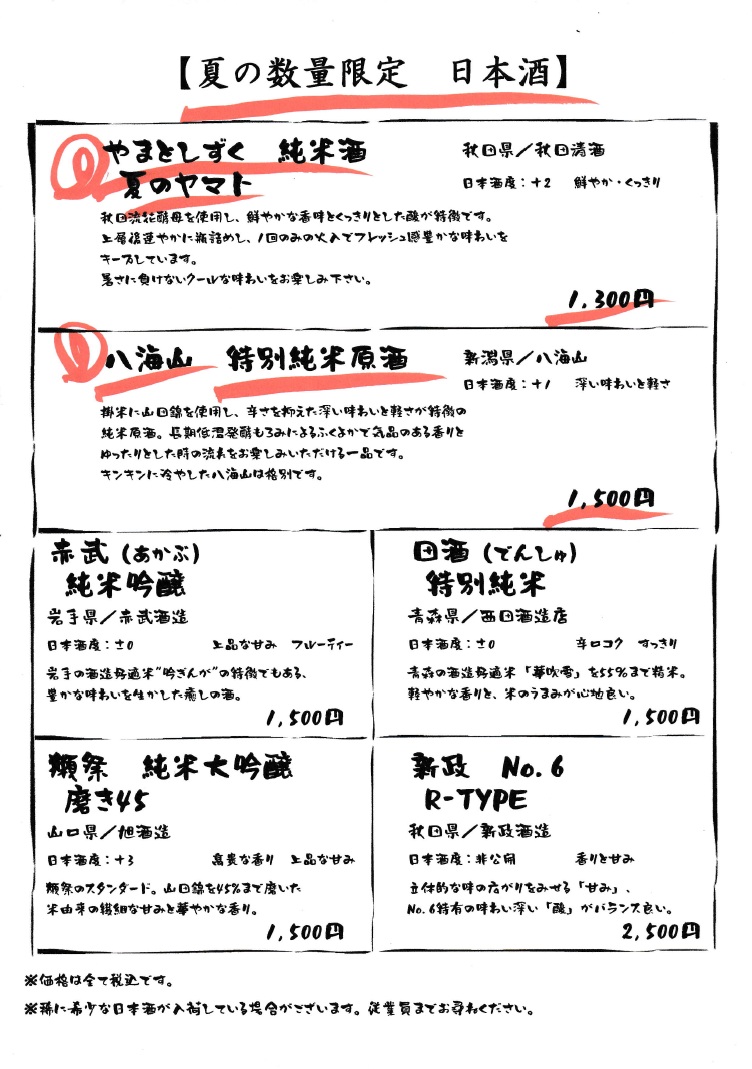 【夏の数量限定　日本酒】
やまとしずく　純米酒
夏のヤマト
秋田県／秋田清酒
日本酒度：+2　鮮やか・くっきり
秋田流花酵母を使用し、鮮やかな香味とくっきりとした酸が特徴です。
上層後速やかに瓶詰めし、1回のみの火入でフレッシュ感豊かな味わいを
キープしています。
暑さに負けないクールな味わいをお楽しみ下さい。
1,300円
八海山　特別純米原酒
新潟県／八海山
日本酒度：+1　深い味わいと軽さ
掛米に山田錦を使用し、辛さを抑えた深い味わいと軽さが特徴の
純米原酒。長期低温発酵もろみによるふくよかで気品のある香りと
ゆったりとした時の流れをお楽しみいただける一品です。
キンキンに冷やした八海山は格別です。
1,500円
赤武（あかぶ）
純米吟醸
岩手県／赤武酒造
日本酒度：±0　上品な甘み　フルーティー
岩手の酒造好適米"吟ぎんが"の特徴でもある、
豊かな味わいを生かした癒しの酒。
1,500円
田酒（でんしゅ）
特別純米
青森県／西田酒造店
日本酒度：±0　辛口コク　すっきり
青森の酒造好適米「華吹雪」を55%まで精米。
軽やかな香りと、米のうまみが心地良い。
1,500円
獺祭　純米大吟醸
磨き45
山口県／旭酒造
日本酒度：+3　高貴な香り　上品な甘み
獺祭のスタンダード。山田錦を45%まで磨いた
米由来の繊細な甘みと華やかな香り。
1,500円
新政　No.6
R-TYPE
秋田県／新政酒造
日本酒度：非公開　香りと甘み
立体的な味の広がりをみせる「甘み」、
No.6特有の味わい深い「酸」がバランス良い。
2,500円
※価格は全て税込です。
※稀に希少な日本酒が入荷している場合がございます。従業員までお尋ねください。